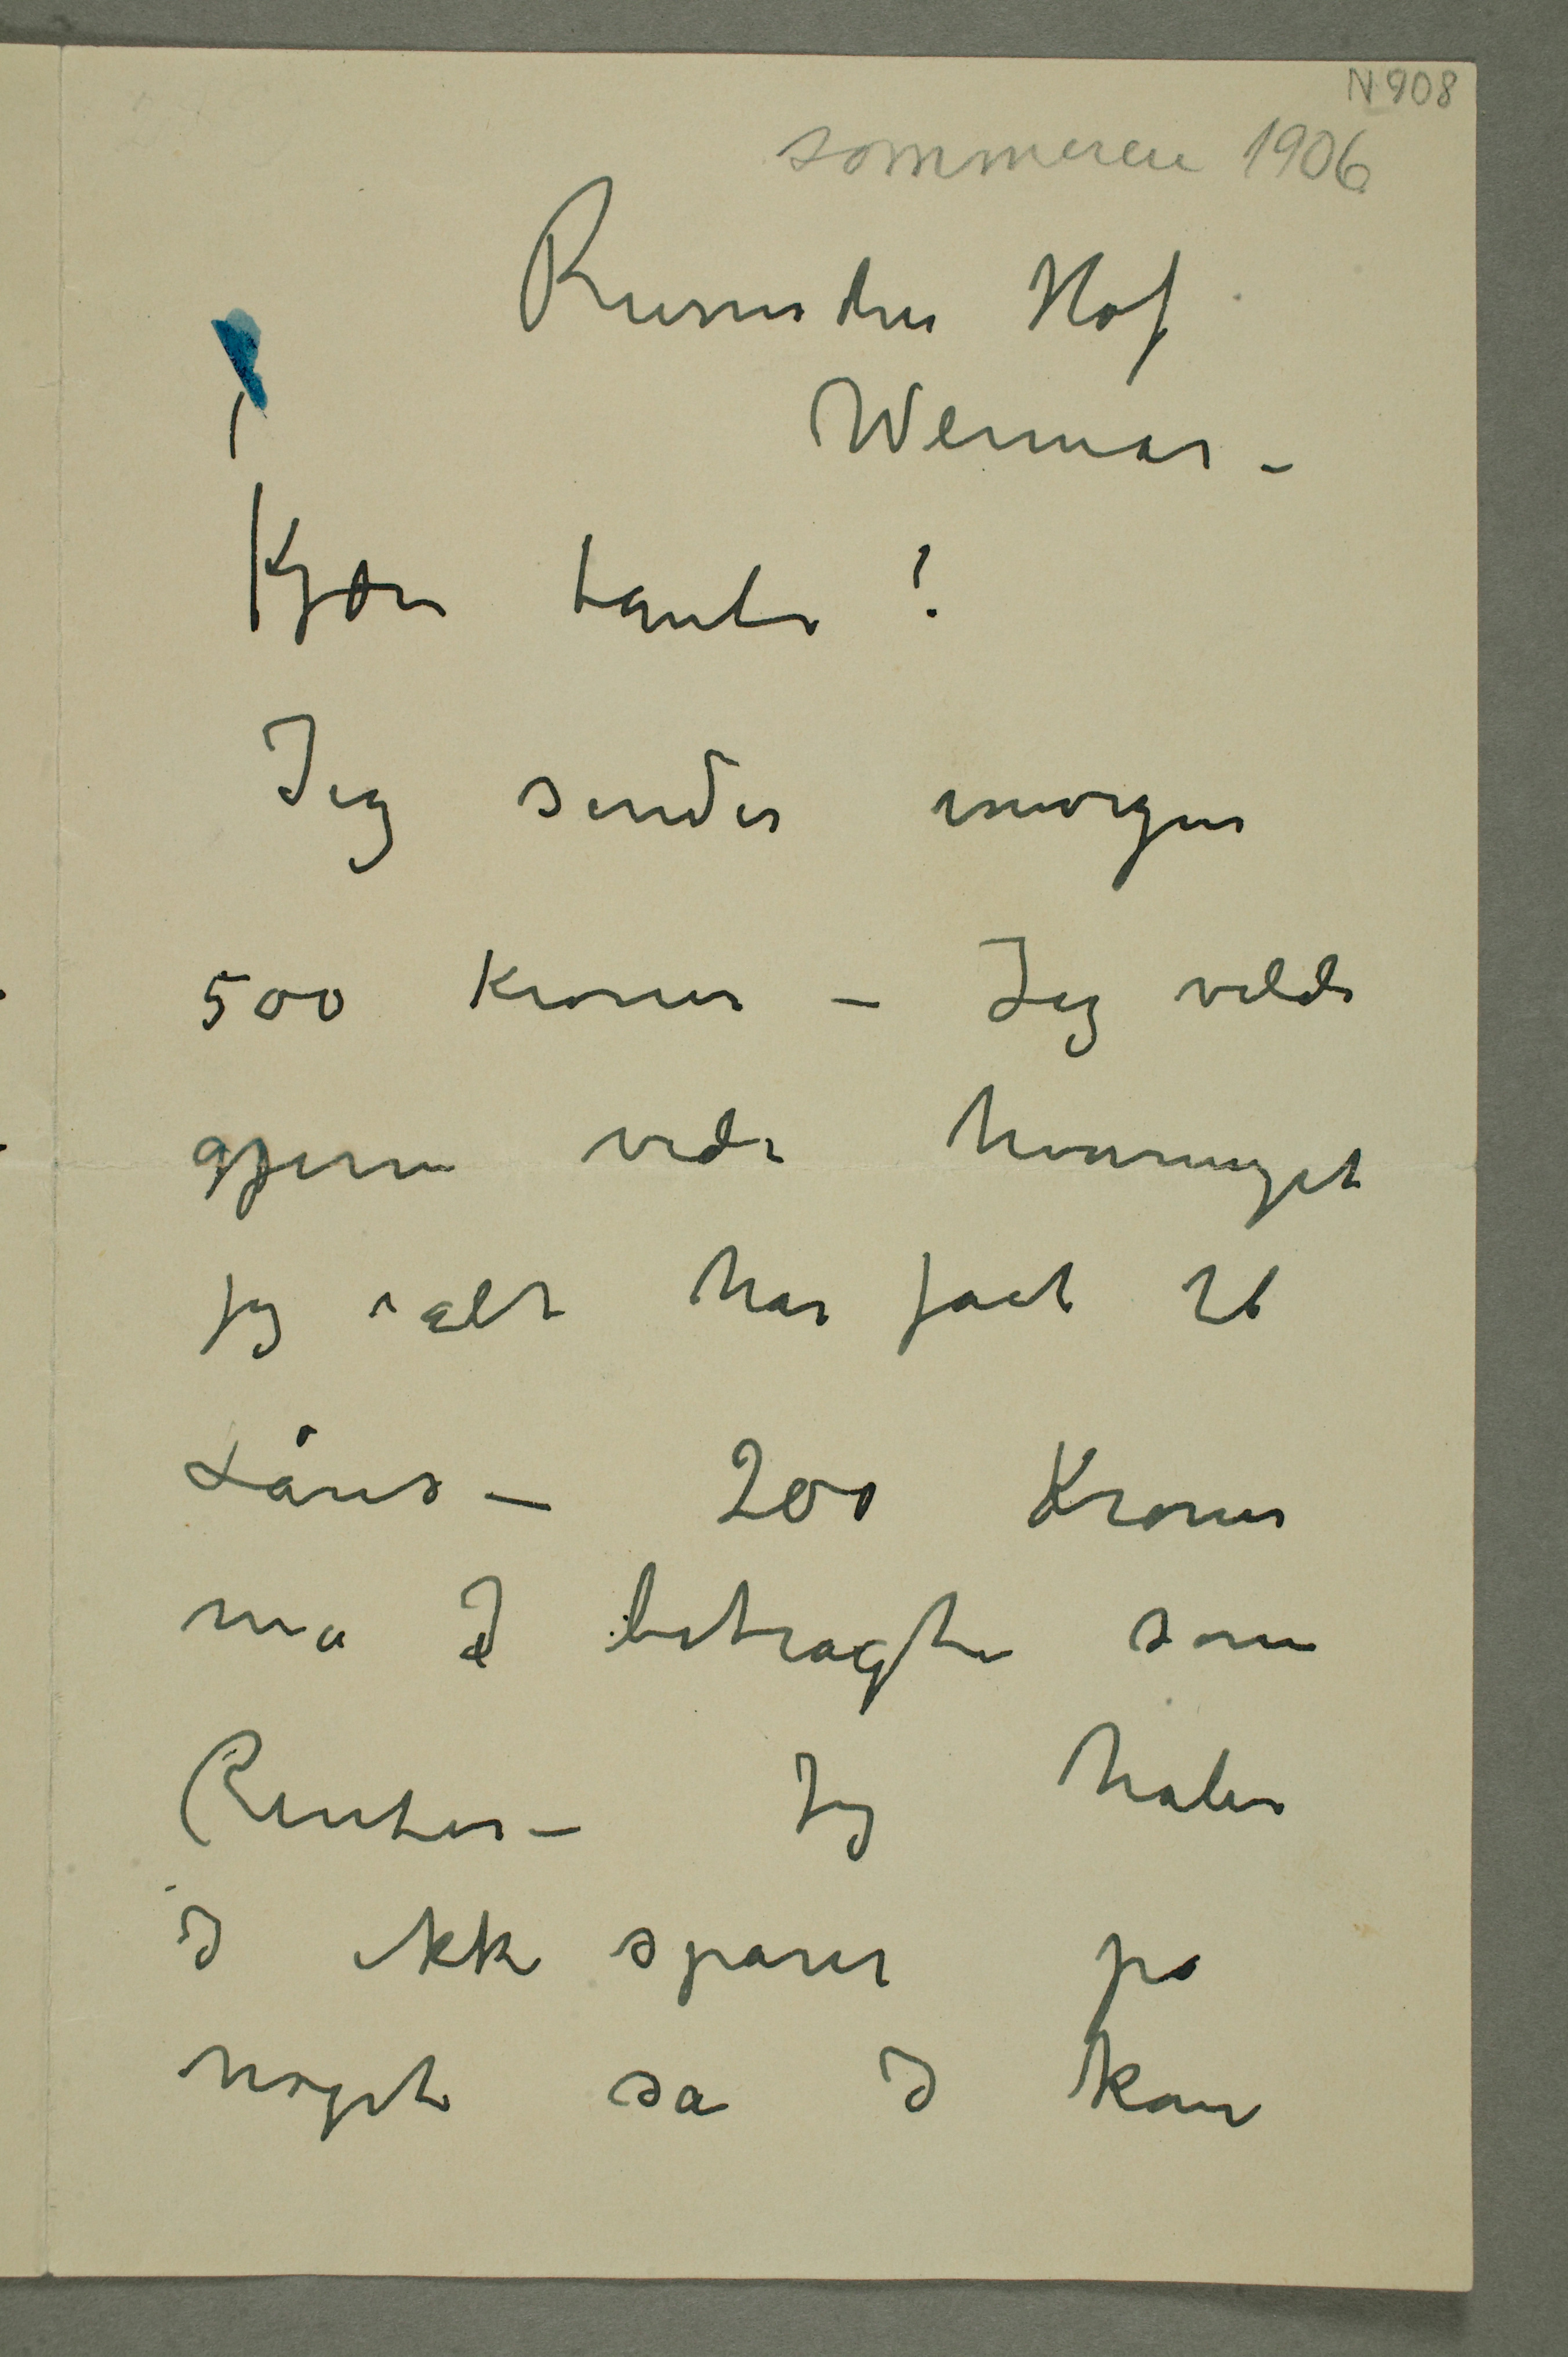 N 908
sommeren 1906
Russischer Hof
Weimar –
Kjære tante!
Jeg sender imorgen
500 kroner – Jeg vilde
gjerne vide hvormeget
jeg ialt har faat til
Låns – 200 Kroner
ma I betragte som
Renter – Jeg håber
I ikke sparer på
noget så I kan